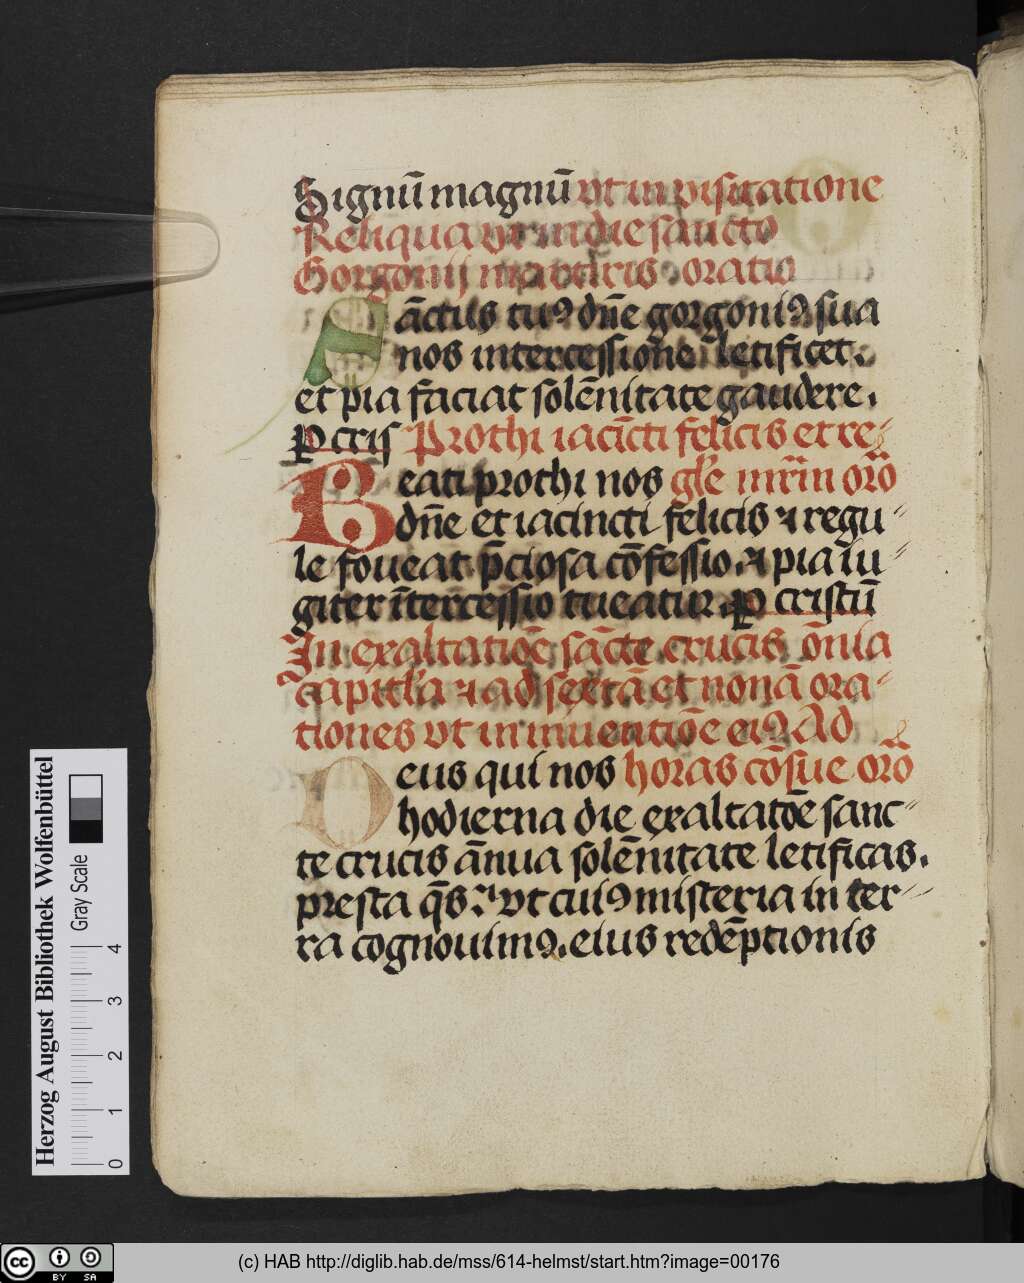 Signū magnū vt in visitatione
Reliqua vt in die sancto
Gorgonij martiris oratio
Sāctus tuꝯ dn̄e gorgoniꝯ sua
nos intercessione letificet.
et pia faciat solēnitate gaudere.
P cris Prothi iacīcti felicis et re-
Beati prothi nos gl'e mr̄m orō
dn̄e et iacincti felicis ⁊ regu-
le foueat p̄ciosa cōfessio. ⁊ pia iu-
giter ītercessio tueatur. P cristū
In exaltatiōe sācte crucis ōnia
capitl'a ⁊ ad sextā et nonā ora-
tiones vt in inuentiōe eiꝯ Ad
Deus qui nos horas cōsue orō
hodierna die exaltatōe sanc-
te crucis ānua solēnitate letificas.
presta q̄s. vt cuiꝯ misteria in ter-
ra cognouimꝯ. eius redēptionis
Herzog August Bibliothek Wolfenbüttel
Gray Scale
0 1 2 3 4
cc BY SA
(c) HAB http://diglib.hab.de/mss/614-helmst/start.htm?image=00176